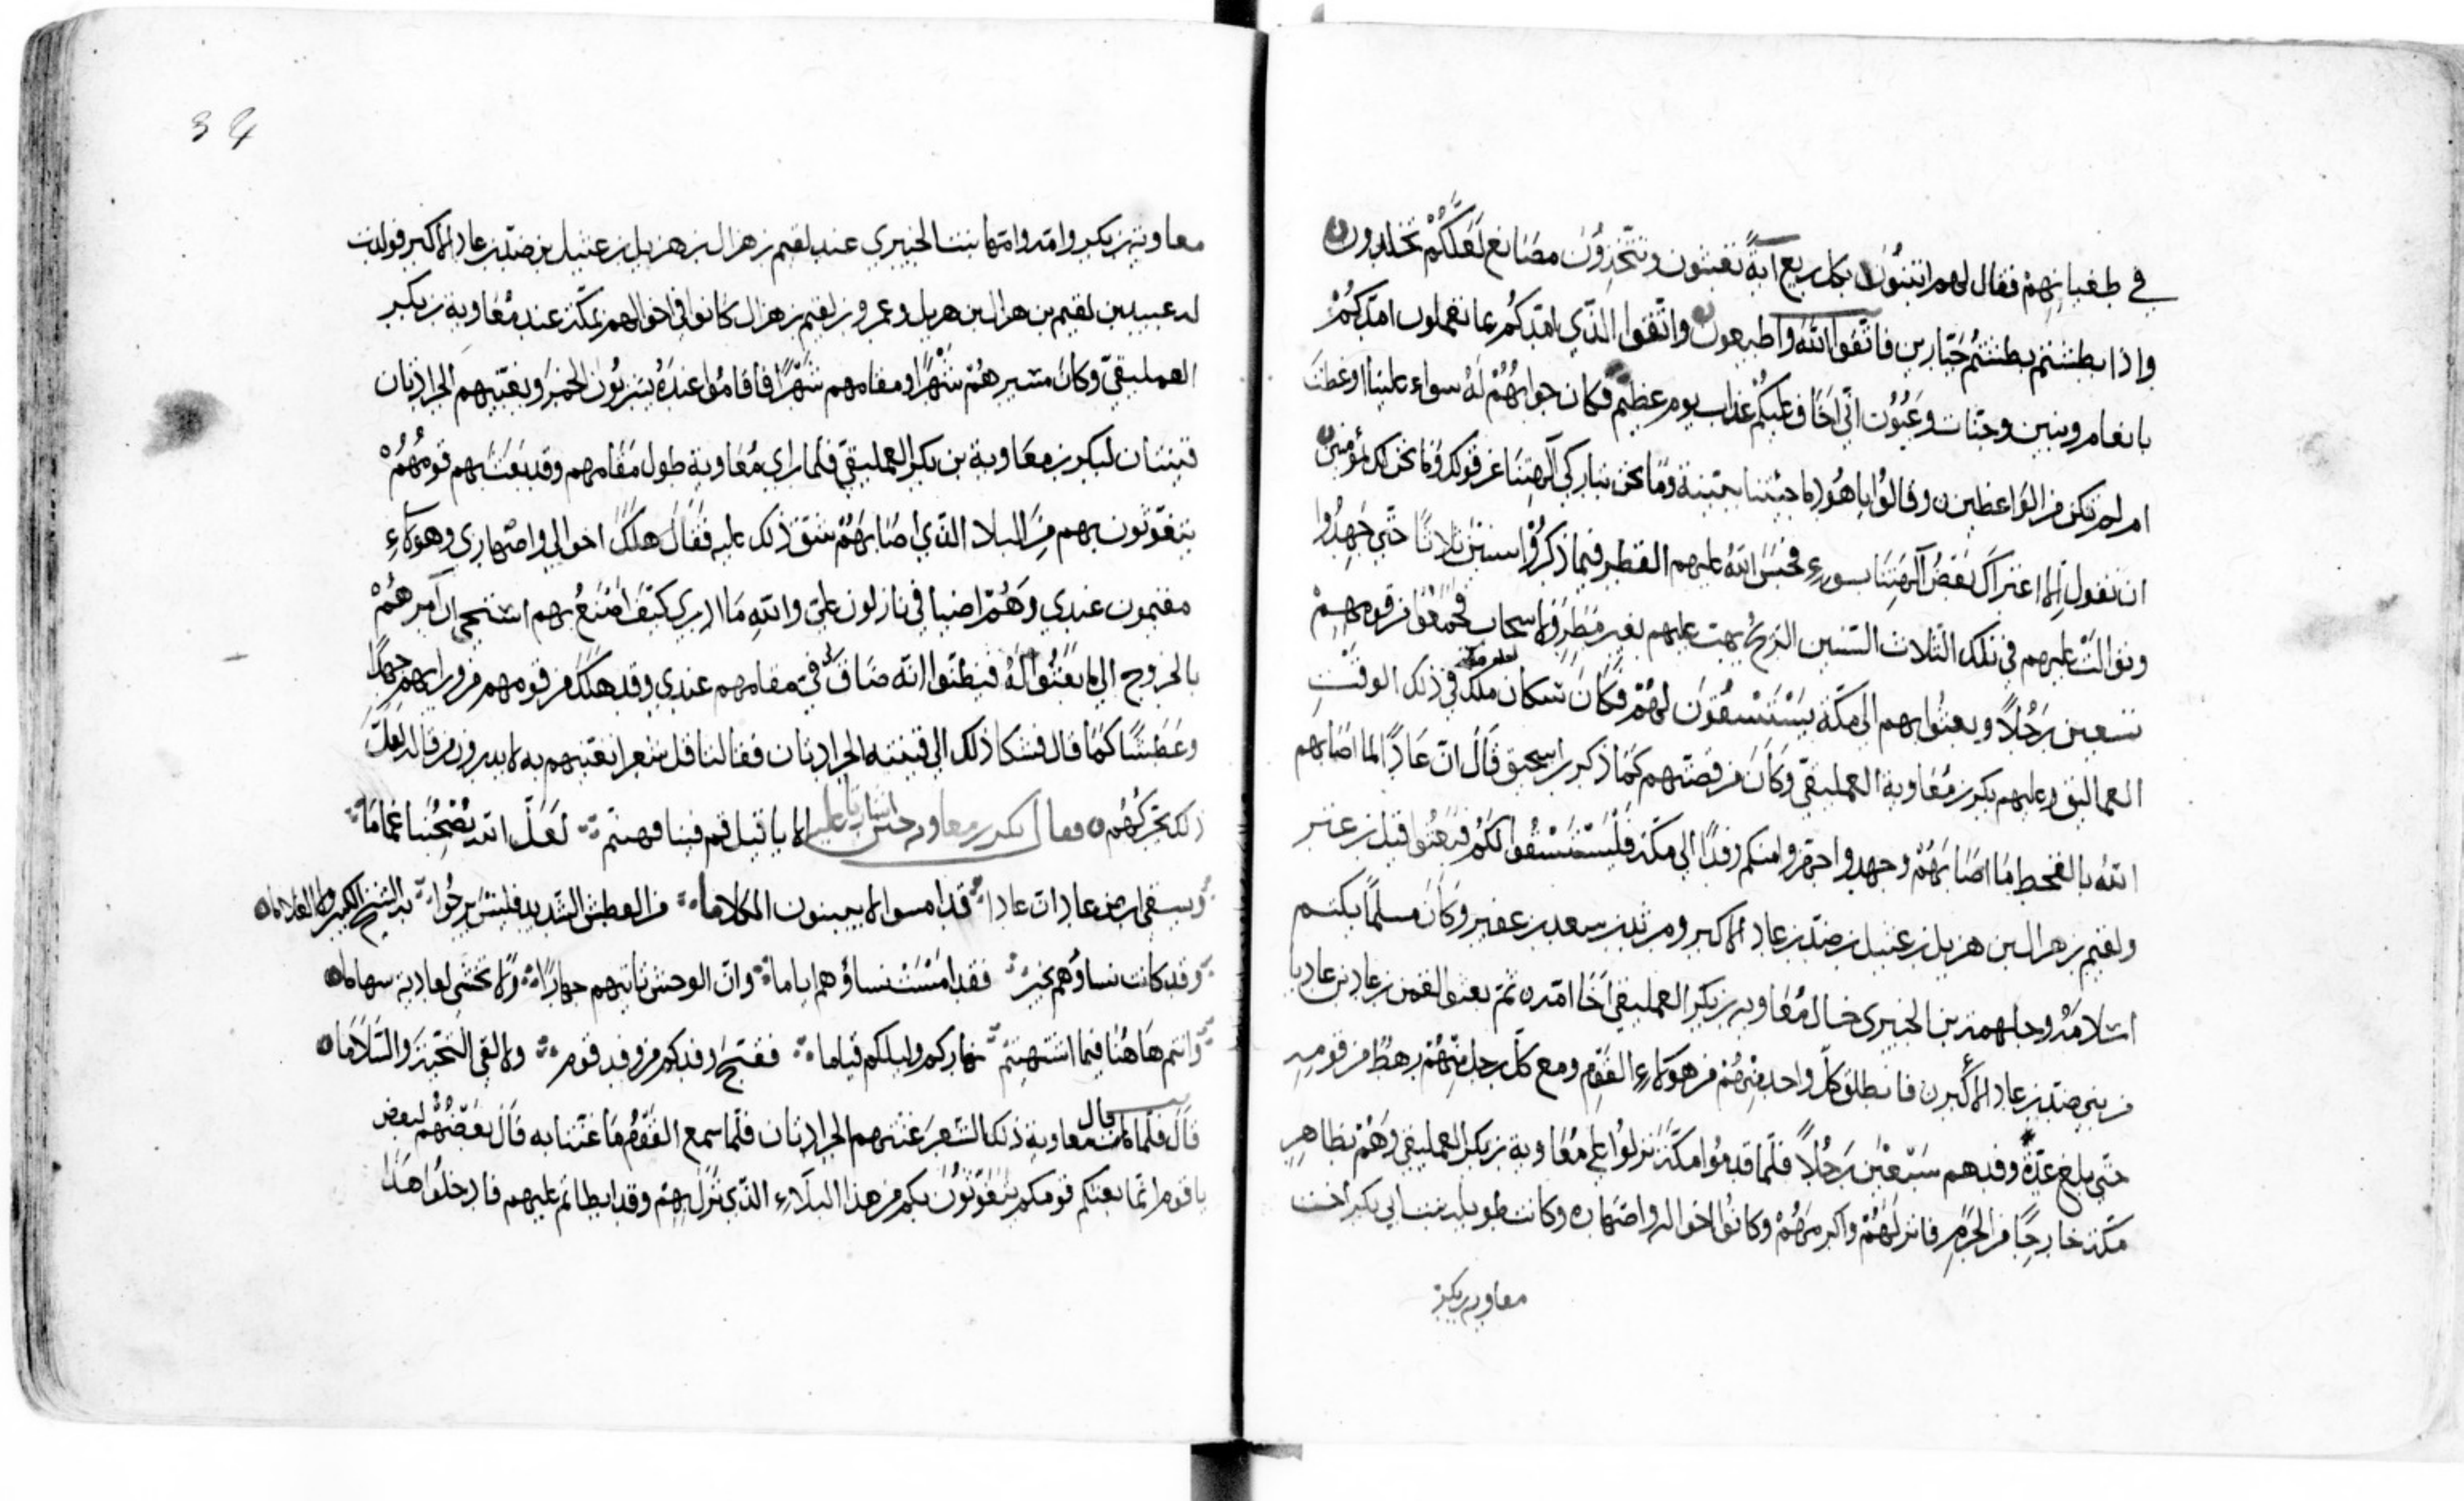 في طغيانهم فقال لهم اتبنون بكل ريع آية تعبثون وتتخذون مصانع لعلكم تخلدون
واذا بطشتم بطشتم جبارين فاتقوا الله واطيعون واتقوا الذي امدكم بما تعملون امدكم
بانعام وبنين وجنات وعيون اني اخاف عليكم عذاب يوم عظيم فكان جوابهم له سواء علينا اوعظت
ام لم تكن من الواعظين وقالوا يا هود ما جئتنا ببينة وما نحن بتاركي آلهتنا عن قولك وما نحن لك بمؤمنين
ان نقول الا اعتراك بعض آلهتنا بسوء فحبس الله عليهم القطر فيما ذكروا سنين ثلاثا حتى جهدوا
وتوالت عليهم في تلك الثلاث السنين الريح يهب عليهم بغير مطر ولا سحاب فجمعوا من قومهم
تسعين رجلا وبعثوا بهم الى مكة يستسقون لهم فكان سكان مكة في ذلك الوقت
العماليق وعليهم بكر بن معاوية العمليقي وكان من قصتهم كما ذكر بن اسحق قال ان عادا لما اصابهم
الله بالقحط ما اصابهم وجهدوا جهزوا منكم وفدا الى مكة فليستسقوا لكم فبعثوا قيل بن عنز
ولقيم بن هزال بن هزيل بن عتيل بن ضد بن عاد الاكبر ومرثد بن سعد بن عفير وكان مسلما يكتم
اسلامه وجلهمة بن الخيبري خال معاوية بن بكر العمليقي اخا امه ثم بعثوا لقمن بن عاد بن عاديا
من بني ضد بن عاد الاكبر فانطلق كل واحد منهم من هولاء القوم ومع كل رجل منهم رهط من قومه
حتى بلغ عدة وفدهم سبعين رجلا فلما قدموا مكة نزلوا على معاوية بن بكر العمليقي وهم بظاهر
مكة خارجا من الحرم فانزلهم واكرمهم وكانوا اخواله واصهاره وكانت طويلة بنت ابي بكر اخت
معاوية بن بكر
34
معاوية بن بكر وامه وامها بنت الخيبري عند لقيم بن هزال بن هزيل بن عتيل بن ضد بن عاد الاكبر فولدت
له عبيد بن لقيم بن هزال بن هزيل وعمرو بن لقيم بن هزال كانوا في اخوالهم بمكة عند معاوية بن بكر
العمليقي وكان مسيرهم شهرا ومقامهم شهرا فاقاموا عنده يشربون الخمر وتغنيهم الجرادتان
قينتان لبكر بن معاوية بن بكر العمليقي فلما راى معاوية طول مقامهم وقد بعث بهم قومهم
يتغوثون بهم من البلاء الذي اصابهم شق ذلك عليه فقال هلك اخوالي واصهاري وهولاء
مقيمون عندي وهم اضيافي نازلون علي والله ما ادري كيف اصنع بهم استحيي ان آمرهم
بالخروج الى ما بعثوا له فيظنوا انه ضاق في مقامهم عندي وقد هلك من قومهم من ورايهم جهدا
وعطشا كما قال فشكا ذلك الى قينتيه الجرادتان فقالتا قل شعرا نغنيهم به لا يدرون من قاله لعل
ذلك يحركهم فقال بكر بن معاوية حين اشارتا عليه الا يا قيل قم فينا فهينم لعل الله يصبحنا غماما
ويسقي ارض عاد ان عادا قد امسوا لا يبينون الكلاما من العطش الشديد فليس يرجوا به الشيخ الكبير ولا الغلاما
وقد كانت نساؤهم بخير فقد امست نساؤهم اياما وان الوحش تاتيهم جهارا ولا تخشى لعادية سهاما
وانتم هاهنا فيما اشتهيتم نهاركم وليلكم قياما فقبح وفدكم من وفد قوم ولا لقي التحية والسلاما
قال فلما قال معاوية ذلك الشعر غنتهم الجرادتان فلما سمع القوم ما غنتا به قال بعضهم لبعض
يا قوم انما بعثكم قومكم يتغوثون بكم من هذا البلاء الذي نزل بهم وقد ابطاتم عليهم فادخلوا هذا